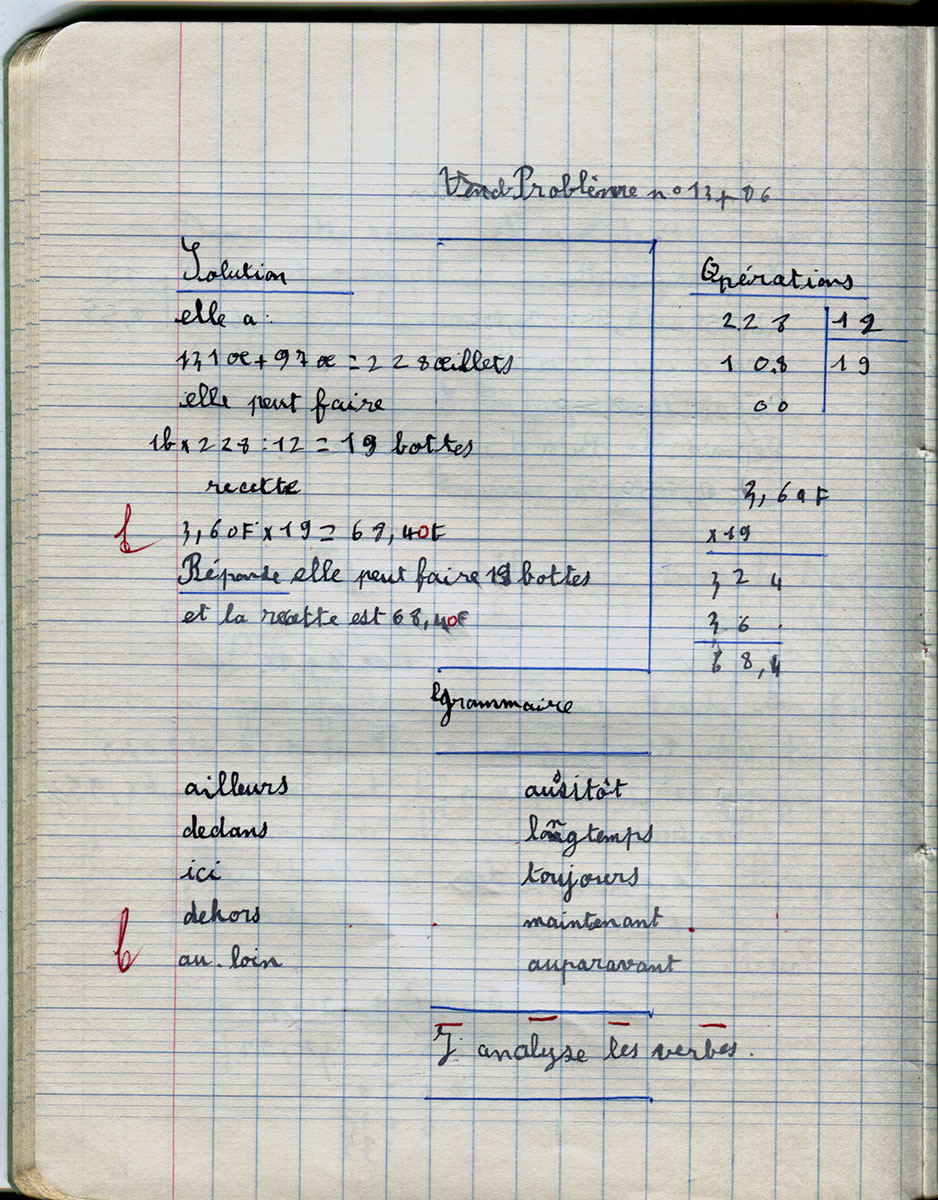 Vend Problème n° 13 + 06
Solution
elle a :
131 œ + 97 œ = 228 œillets
elle peut faire
1b x 228 : 12 = 19 bottes
recette
b 3,60F x 19 = 68,40F
Réponse elle peut faire 19 bottes
et la recette est 68,40F
Opérations
228 12
108 19
00
3,60F
x 19
324
36 .
68,4
grammaire
ailleurs
dedans
ici
dehors
b au loin
aussitôt
longtemps
toujours
maintenant
auparavant
J analyse les verbes.